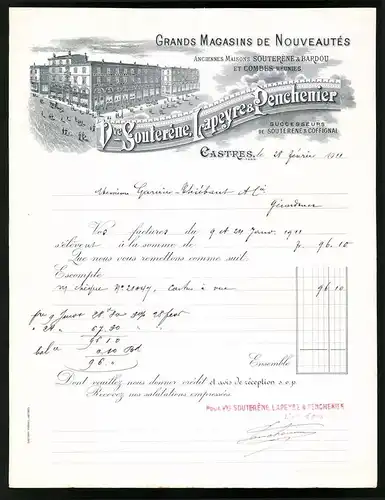 GRANDS MAGASINS DE NOUVEAUTÉS
ANCIENNES MAISONS SOUTERÈNE & BARDOU
ET COMBES RÉUNIES
Vve Souterène, Lapeyre & Penchenier
SUCCESSEURS
DE SOUTERÈNE & COFFIGNAL
CASTRES, le 28 février 1911
Messieurs Garnier-Thiébaut & Cie
Gérardmer
Vos factures du 9 & 24 Janv. 1911
s'élèvent à la somme de 96.10
Que nous vous remettons comme suit
Escompte
chèque N° à vue 96 10
28
24 67.80
96 10
0.10
96.0
Ensemble
Dont veuillez nous donner crédit et avis de réception s.v.p.
Recevez nos salutations empressées
POUR Vve SOUTERÈNE, LAPEYRE & PENCHENIER